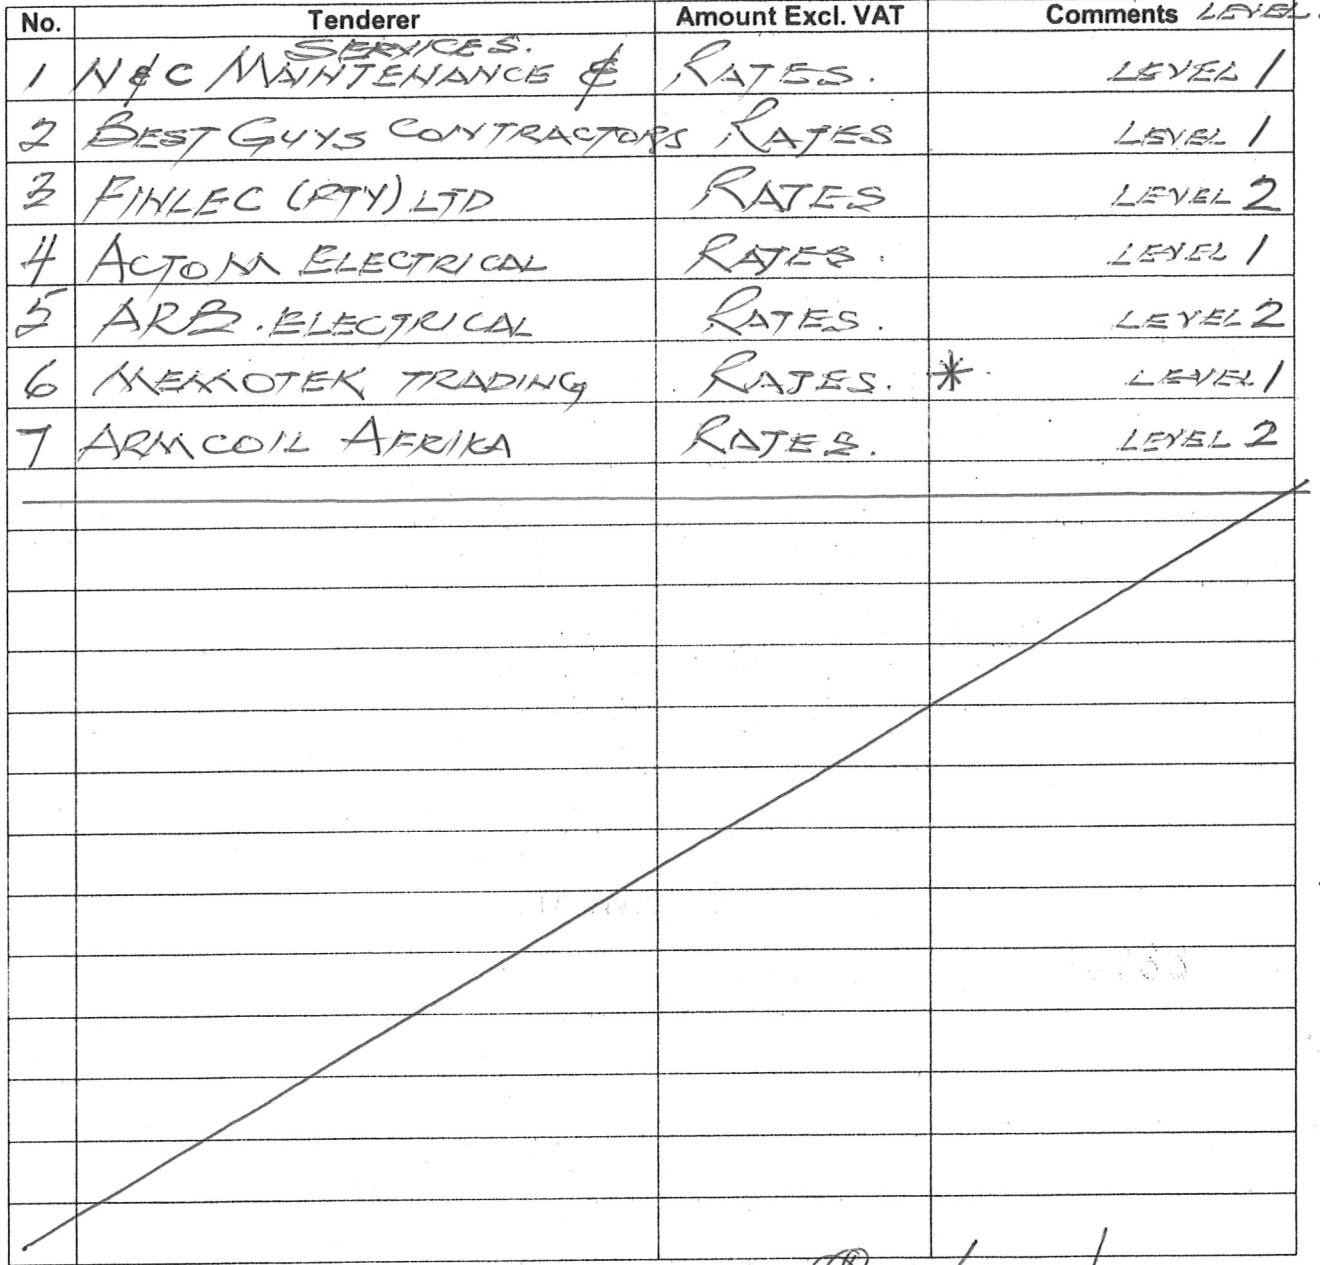 No. Tenderer Amount Excl. VAT Comments LEVEL.
SERVICES.
1 N&C MAINTENANCE & RATES. LEVEL 1
2 BEST GUYS CONTRACTORS RATES LEVEL 1
3 FINLEC (PTY) LTD RATES LEVEL 2
4 ACTOM ELECTRICAL RATES. LEVEL 1
5 ARB. ELECTRICAL RATES. LEVEL 2
6 MEMOTEK TRADING RATES. * LEVEL 1
7 ARMCOIL AFRIKA RATES. LEVEL 2